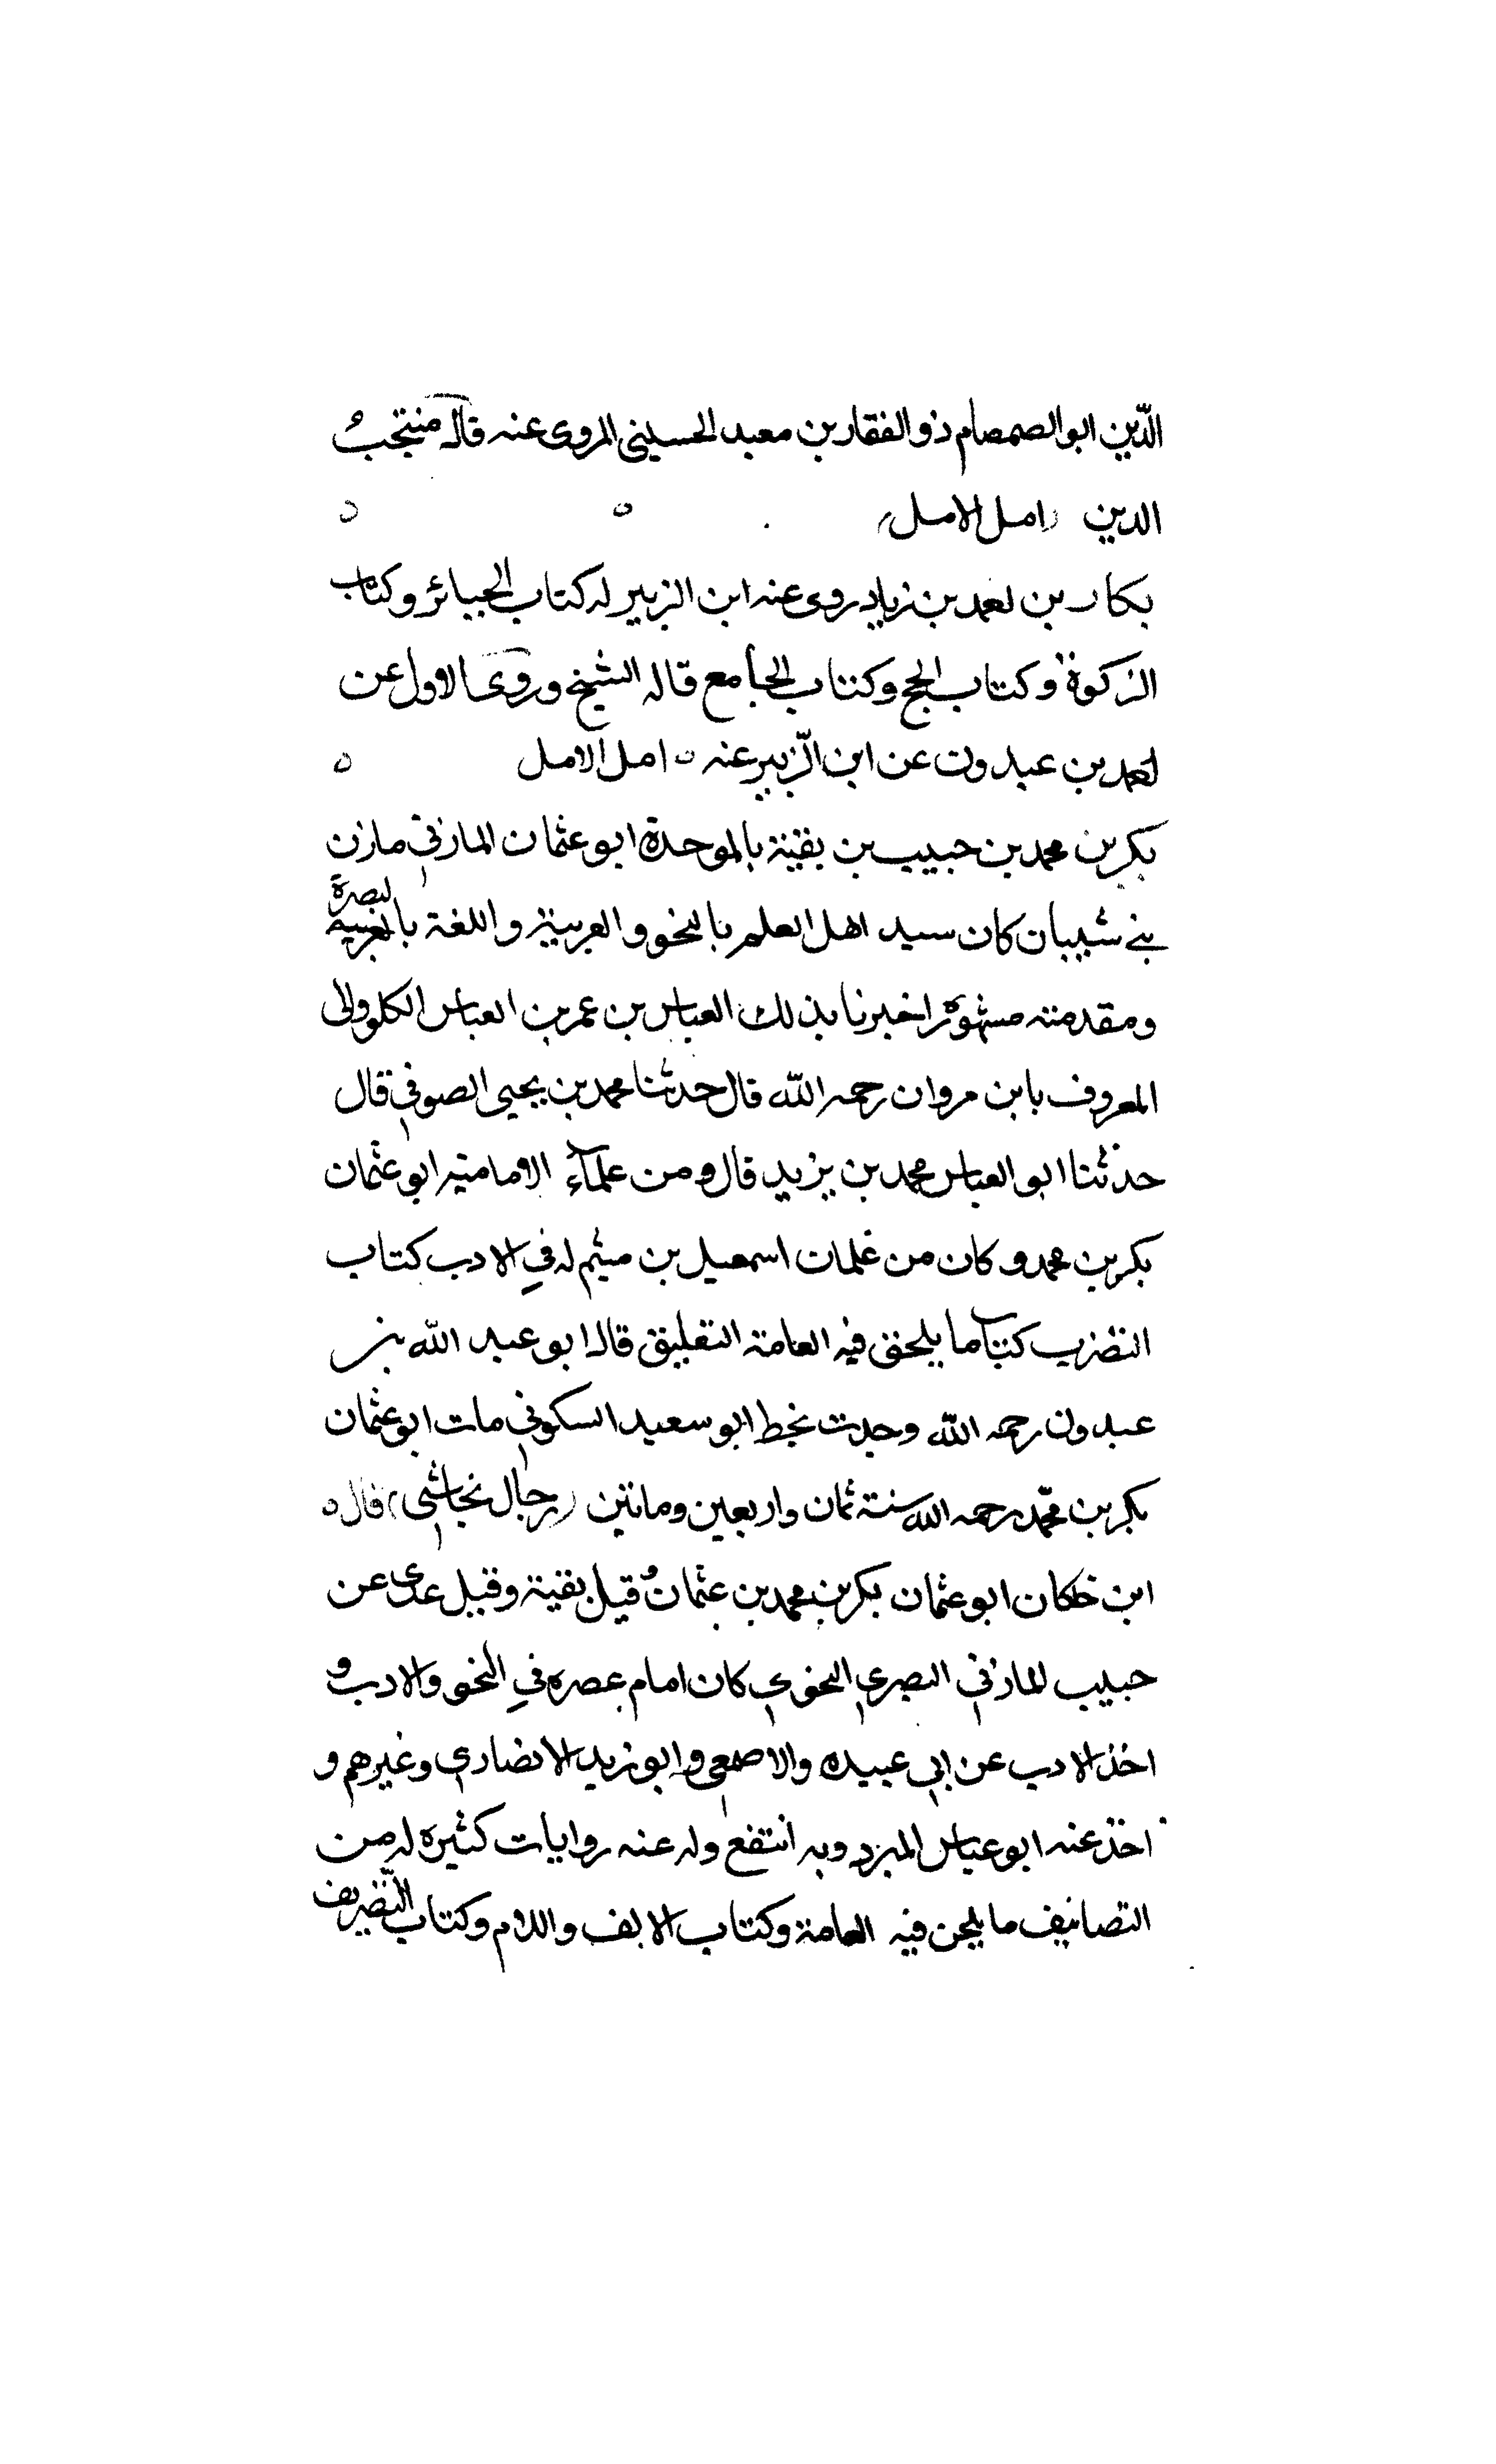 الدّين ابو الصمصام ذو الفقار بن معبد الحسينى المروى عنه قاله منتجب
الدين (امل الامل)
بكار بن احمد بن زياد روى عنه ابن الزبير له كتاب الجبائر وكتاب
الزكوة وكتاب الحج وكتاب الجامع قاله الشيخ وروى الاول عن
احمد بن عبدون عن ابن الزّبير عنه ○ امل الامل
بكر بن محمد بن حبيب بن بقية بالموحدة ابو عثمان المازنى مازن
بنے شيبان كان سيد اهل العلم بالنحو والعربية واللغة بالبصرة
ومقدمته مشهوره اخبرنا بذلك العباس بن عمر بن العباس الكلوولى
المعروف بابن مروان رحمه اللّه قال حدثنا محمد بن يحيى الصوفى قال
حدثنا ابو العباس محمد بن يزيد قال ومن علمآء الاماميه ابو عثمان
بكر بن محمد و كان من غلمان اسمعيل بن ميثم له فى الادب كتاب
التضريب كتاب ما يلحق فيه العامة التعليق قال ابو عبد اللّه بن
عبدون رحمه اللّه وجدت بخط ابو سعيد السكونى مات ابو عثمان
بكر بن محمّد رحمه اللّه سنة ثمان واربعين وماتين (رجال نجاشى) قال ○
ابن خلكان ابو عثمان بكر بن محمد بن عثمان و قيل بقية وقيل عدى عن
حبيب المازنى البصرى النحوى كان امام عصره فى النحو والادب و
اخذ الادب عن ابى عبيده والاصمعى وابو زيد الانصارى وغيرهم و
اخذ عنه ابو عباس المبرد وبه انتفع وله عنه روايات كثيره له من
التصانيف ما يلحن فيه العامة وكتاب الالف واللام وكتاب التّصريف